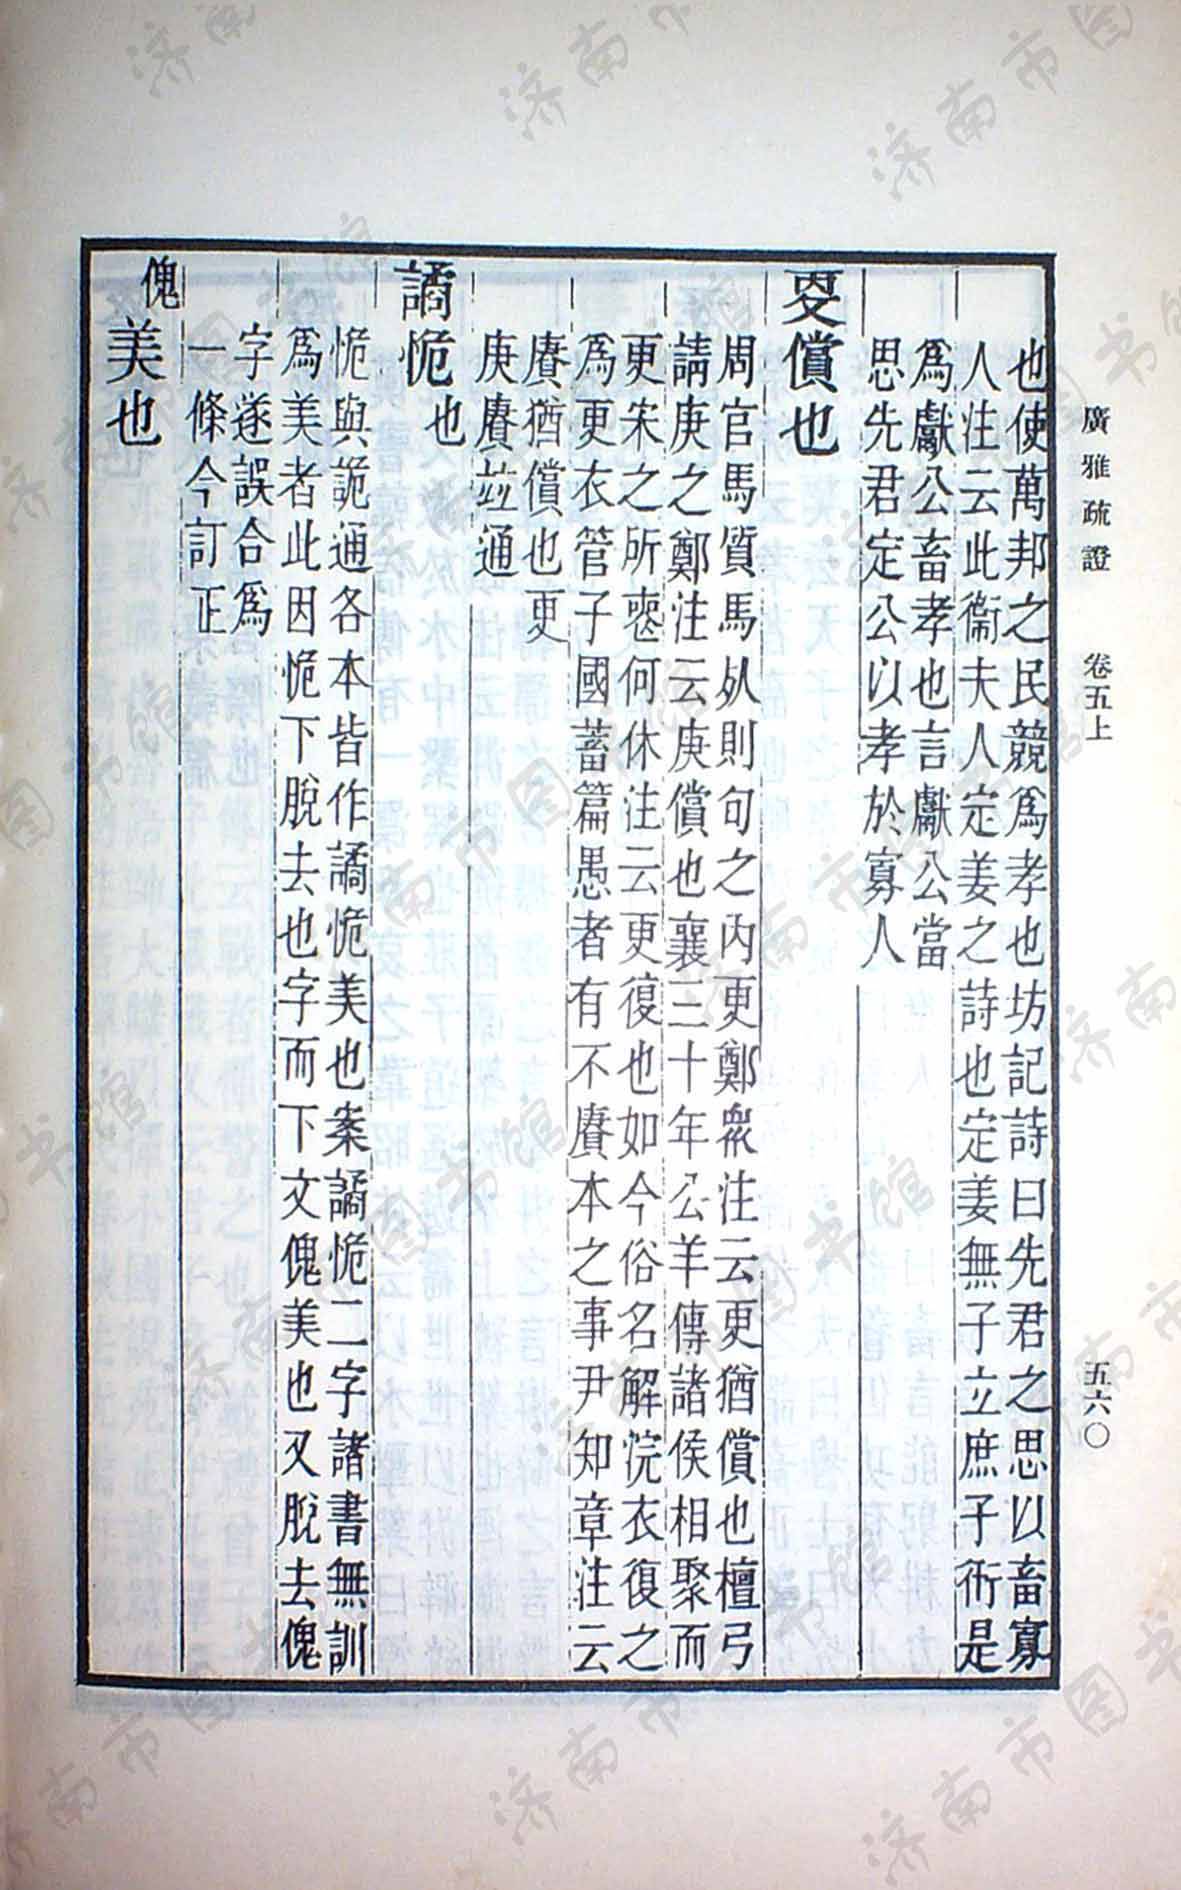 廣雅疏證　卷五上　五六〇
也使萬邦之民競為孝也坊記詩曰先君之思以畜寡
人注云此衞夫人定姜之詩也定姜無子立庶子衎是
為獻公畜孝也言獻公當
思先君定公以孝於寡人
㪅償也
周官馬質馬死則句之內更鄭衆注云更猶償也檀弓
請庚之鄭注云庚償也襄三十年公羊傳諸侯相聚而
更宋之所喪何休注云更復也如今俗名解浣衣復之
為更衣管子國蓄篇愚者有不賡本之事尹知章注云
賡猶償也更
庚賡竝通
譎恑也
恑與詭通各本皆作譎恑美也案譎恑二字諸書無訓
為美者此因恑下脫去也字而下文傀美也又脫去傀
字遂誤合為
一條今訂正
傀美也
济南市图书馆